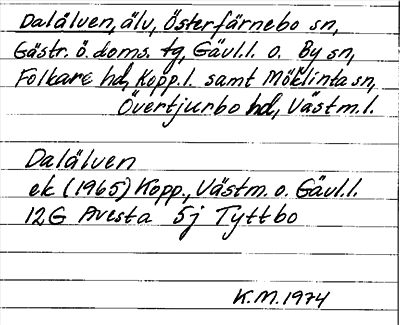 Dalälven, älv, Österfärnebo sn,
Gästr. ö. doms. tg, Gävl.l. o. By sn,
Folkare hd, Kopp.l. samt Möklinta sn,
Övertjurbo hd, Västm.l.
Dalälven
ek (1965) Kopp., Västm. o. Gävl.l.
12G Avesta 5j Tyttbo
K.M. 1974